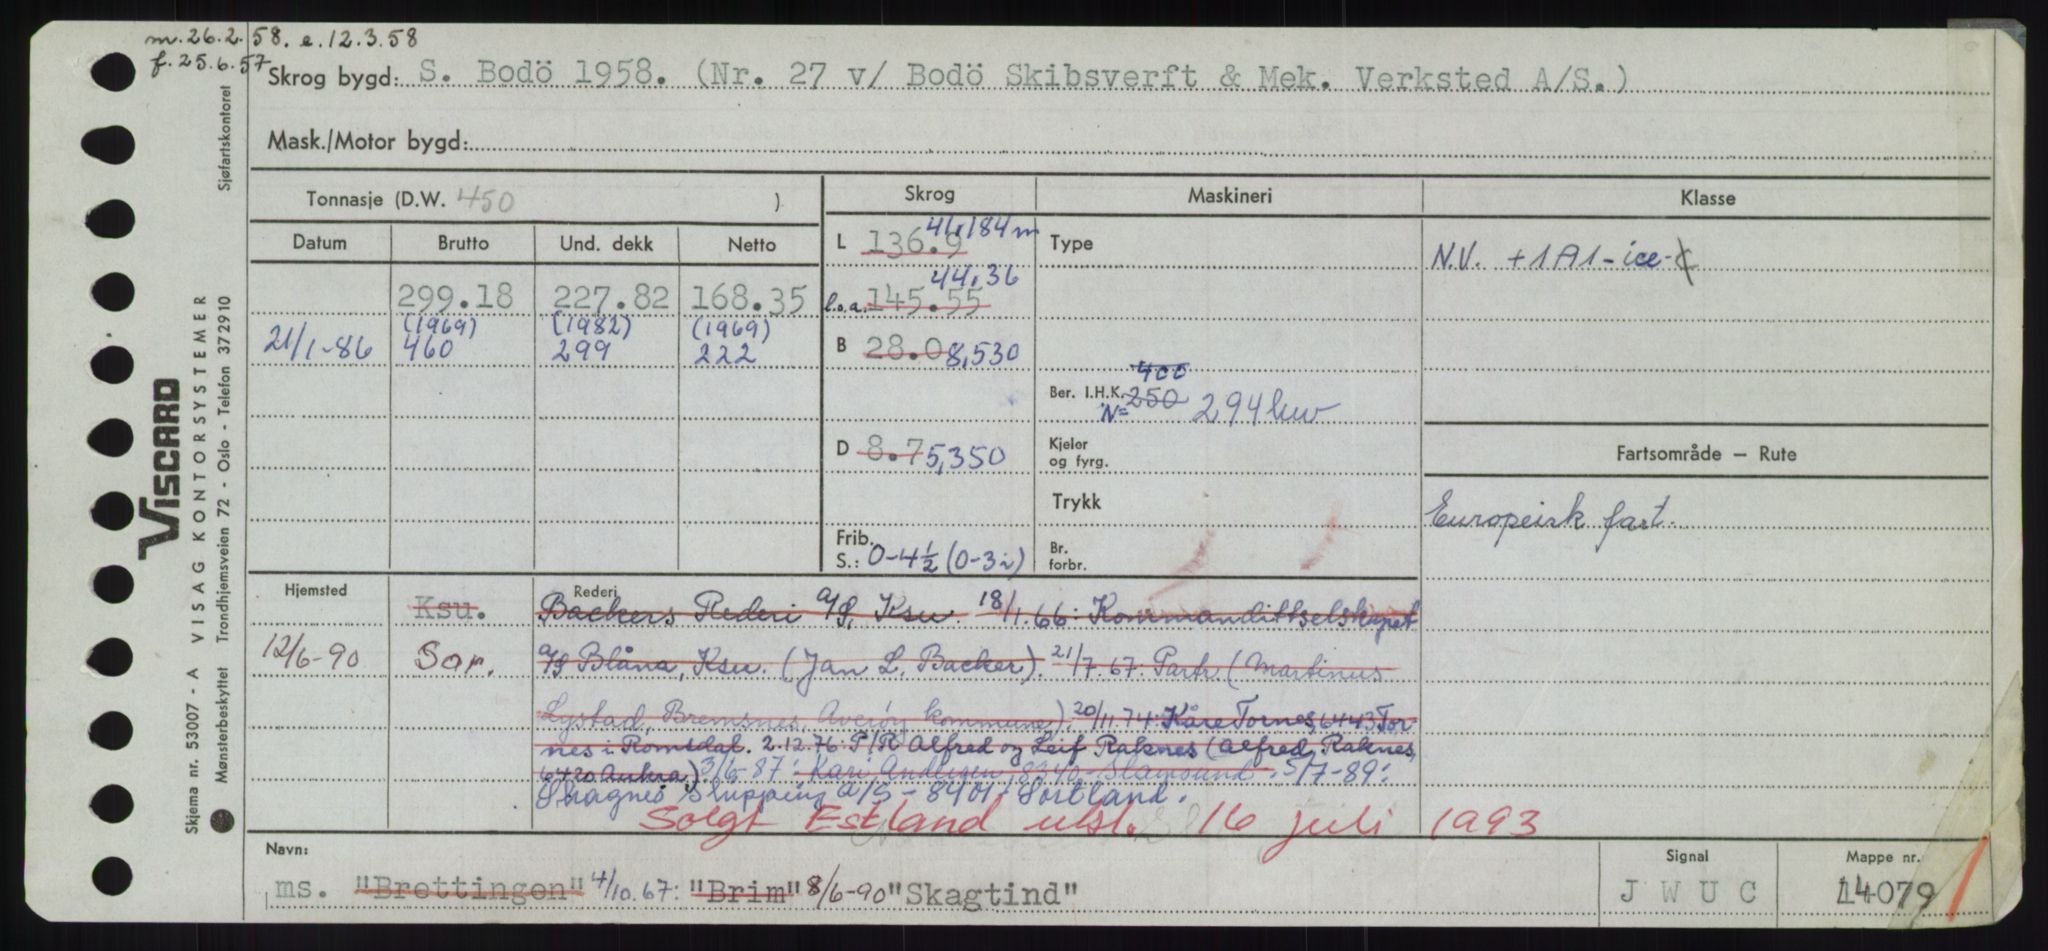 m. 26.2.58. e. 12.3.58
f. 25.6.57
Skrog bygd: S. Bodö 1958. (Nr. 27 v/ Bodö Skibsverft & Mek. Verksted A/S.)
Mask./Motor bygd:
Tonnasje (D.W. 450 )
Skrog
Maskineri
Klasse
Datum
Brutto
Und. dekk
Netto
L 136.9 41,184 m
Type
N.V. +1A1-ice-C
299.18 227.82 168.35
l.o.a. 145.55 44,36
(1969) (1982) (1969)
21/1-86 460 299 222
B 28.0 8,530
400
Ber. I.H.K. 250
N= 294 kw
D 8.7 5,350
Kjeler og fyrg.
Fartsområde — Rute
Trykk
Europeisk fart.
Frib. S.: 0-4½ (0-3i)
Br. forbr.
Hjemsted
Rederi
Ksu. Backers Rederi A/S, Ksu. 18/1.66: Kommandittselskapet
12/6-90 Sor. A/S Blåna, Ksu. (Jan L. Backer). 21/7.67: Partr. (Martinus
Lystad, Bremsnes, Averøy kommune). 20/11.74: Kåre Tornes, 6443 Tor-
nes i Romsdal. 2.12.76: P/R Alfred og Leif Raknes (Alfred Raknes,
6420 Aukra). 3/6-87: Kari Andersen, 8340 Stamsund. 5/7-89:
Skagnes Shipping A/S - 8401 - Sortland.
Solgt Estland utsl. 16 juli 1993
Navn:
ms. "Brettingen" 4/10.67: "Brim" 8/6-90 "Skagtind"
Signal
J W U C
Mappe nr.
14079
VISCARD
Skjema nr. 53007 - A VISAG KONTORSYSTEMER
Mønsterbeskyttet Trondhjemsveien 72 - Oslo - Telefon 372910 Sjøfartskontoret